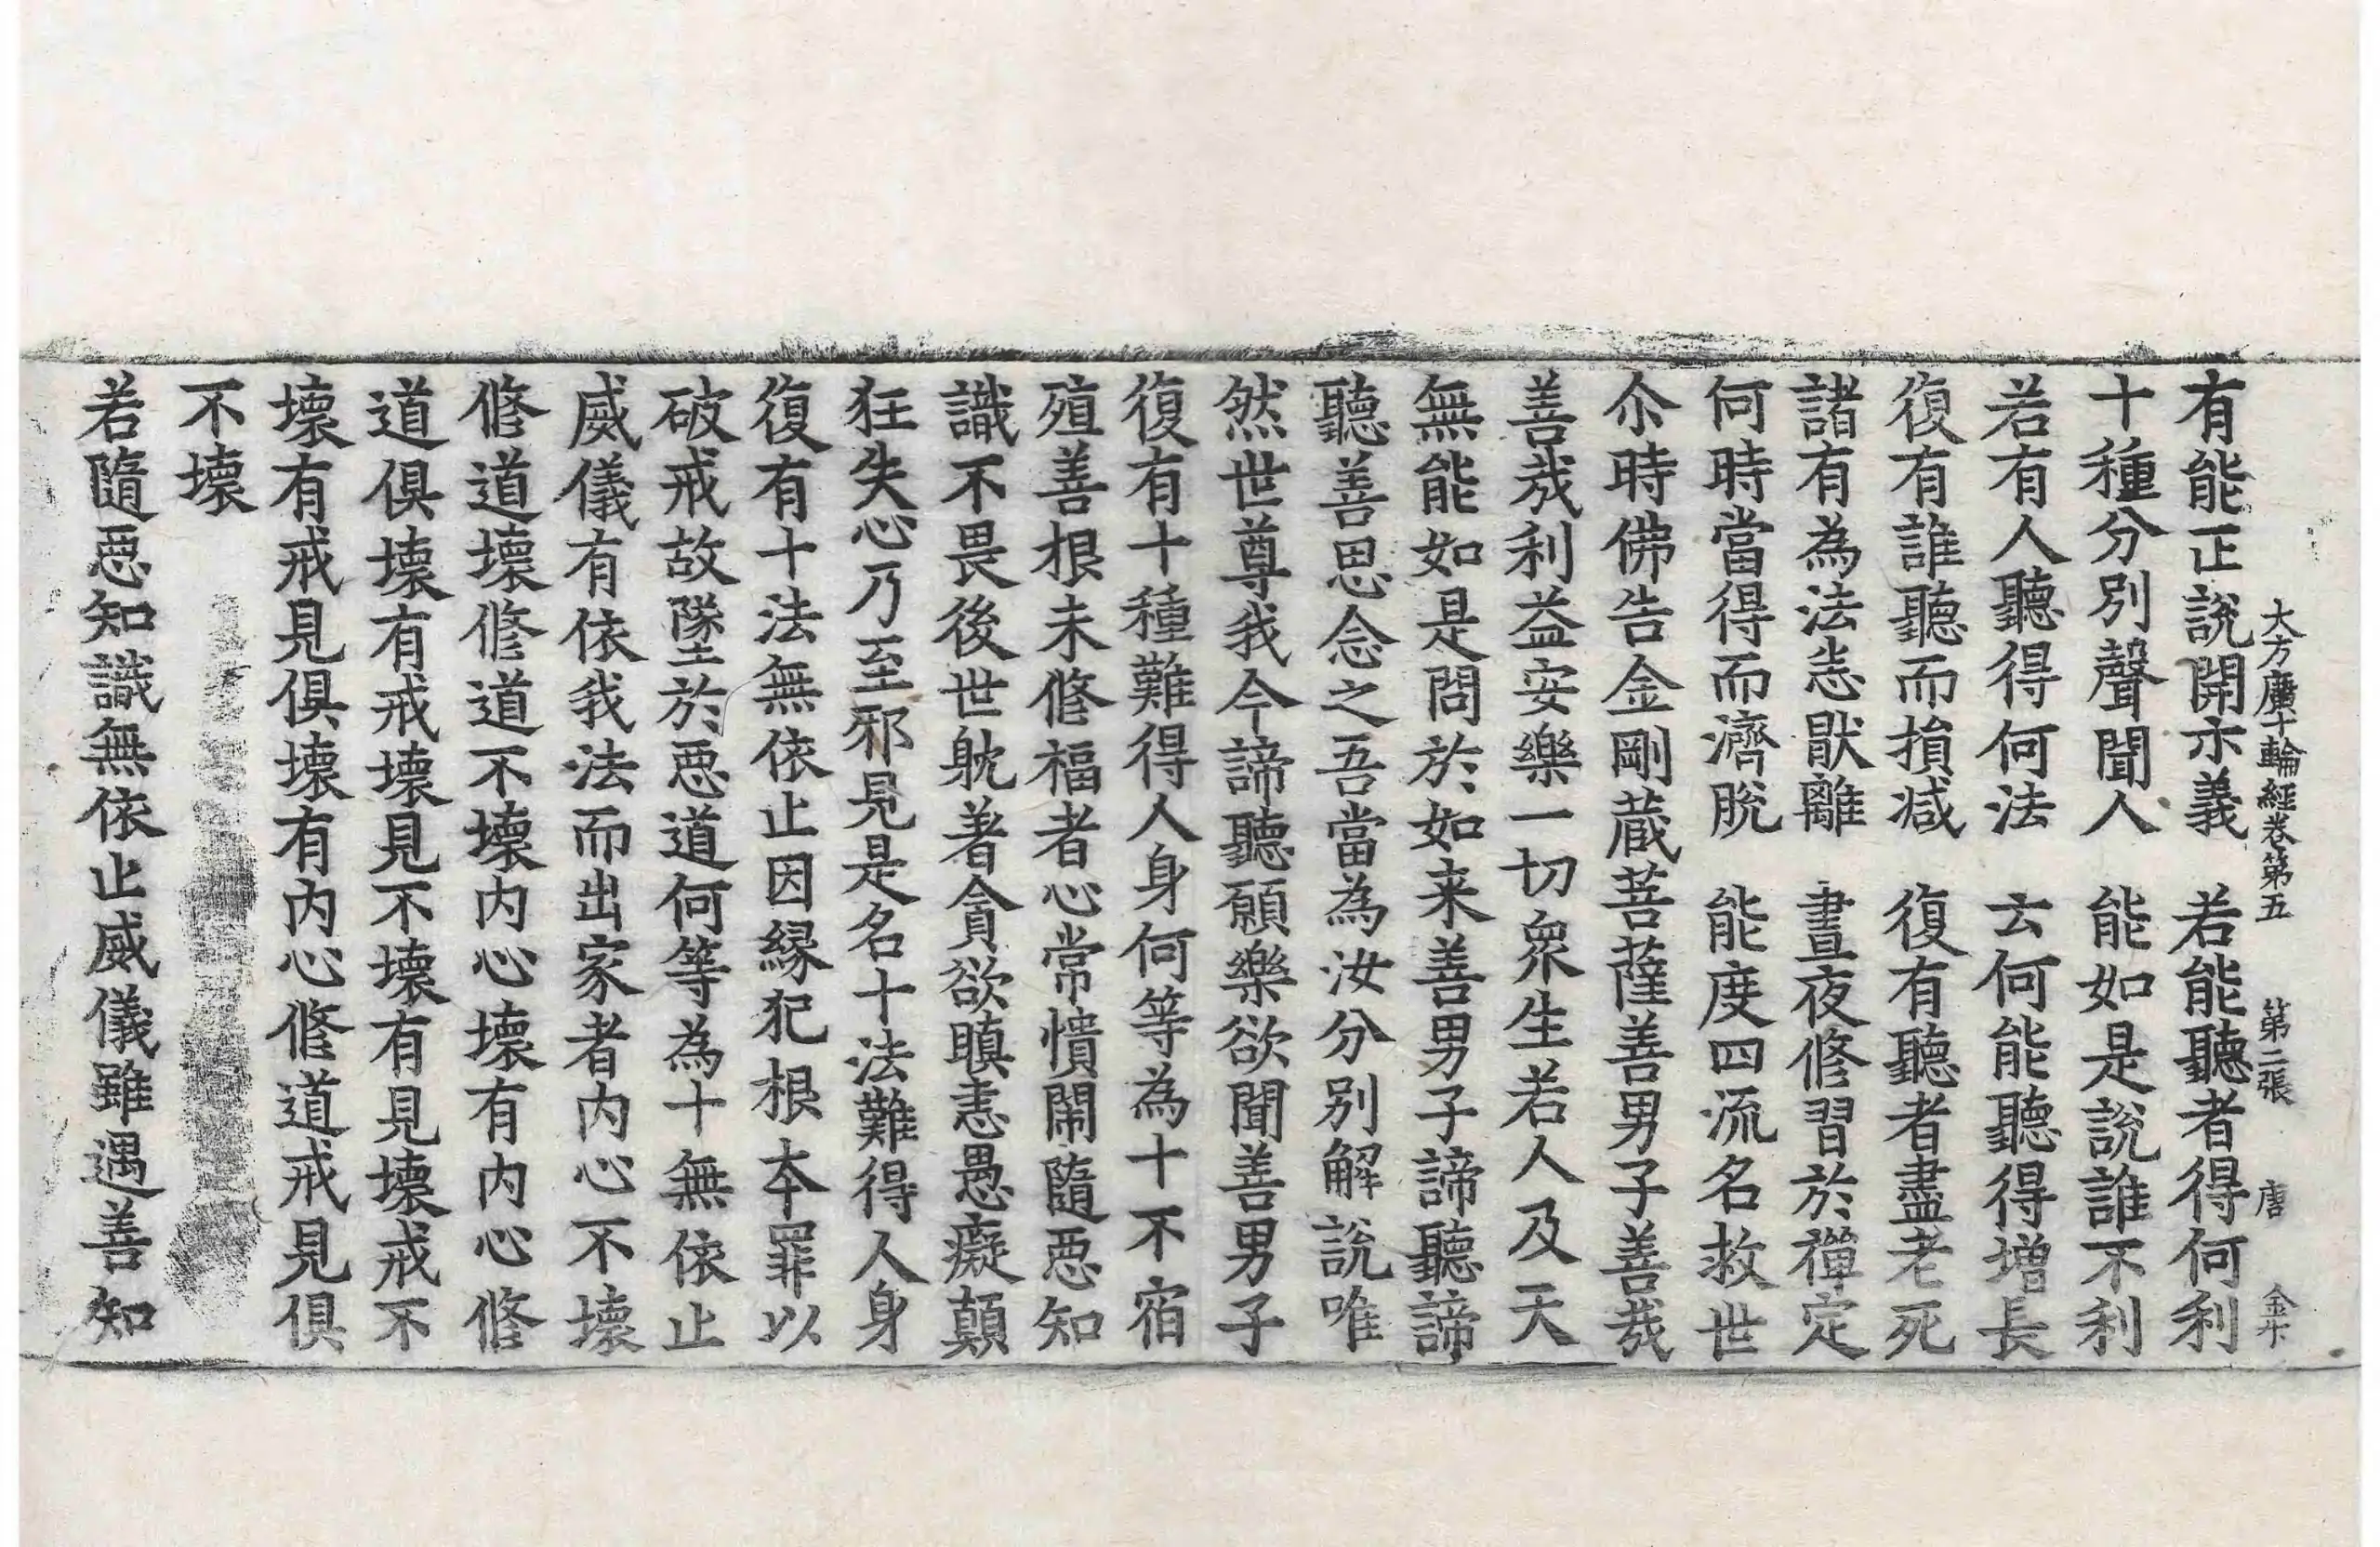 大方廣十輪經卷第五　第二張　唐
有能正說開示義　若能聽者得何利
十種分別聲聞人　能如是說誰不利
若有人聽得何法　云何能聽得增長
復有誰聽而損減　復有聽者盡老死
諸有為法恙厭離　晝夜修習於禪定
何時當得而濟脫　能度四流名救世
尒時佛告金剛蔵菩薩善男子善㢤
善㢤利益安樂一切衆生若人及天
無能如是問於如来善男子諦聽諦
聽善思念之吾當為汝分別解說唯
然世尊我今諦聽願樂欲聞善男子
復有十種難得人身何等為十不宿
殖善根未修福者心常憒閙隨惡知
識不畏後世躭著貪欲瞋恚愚癡顛
狂失心乃至邪見是名十法難得人身
復有十法無依止因縁犯根本罪以
破戒故墜於惡道何等為十無依止
威儀有依我法而出家者内心不壞
修道壞修道不壞内心壞有内心修
道俱壞有戒壞見不壞有見壞戒不
壞有戒見俱壞有内心修道戒見俱
不壞
若隨惡知識無依止威儀雖遇善知